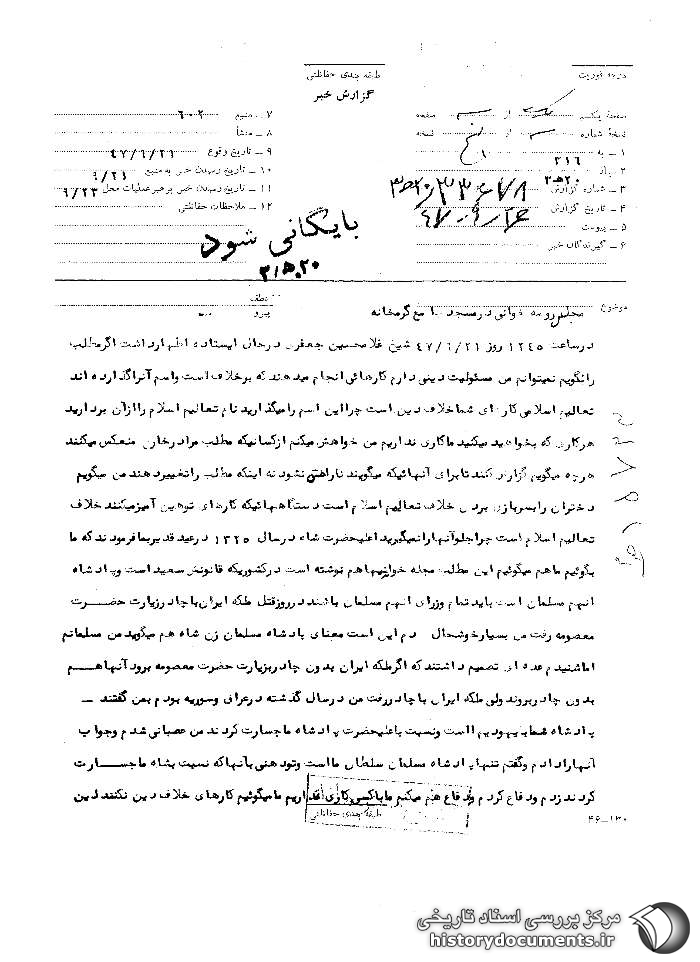 طبقه بندی حفاظتی
گزارش خبر
صفحه یکم از صفحه
نسخه شماره از نسخه
۱ ـ به ۳۱۶
۲ ـ از ۲۰ ه ۳
۳ ـ شماره گزارش
۴ ـ تاریخ گزارش
۵ ـ پیوست
۶ ـ گیرندگان خبر
۷ ـ منبع ۶۰۲
۸ ـ منشأ
۹ ـ تاریخ وقوع ۴۷/۶/۲۱
۱۰ ـ تاریخ رسیدن خبر به منبع ۶/۲۱
۱۱ ـ تاریخ رسیدن خبر برهبر عملیات محل ۶/۲۳
۱۲ ـ ملاحظات حفاظتی
بایگانی شود
موضوع مجلس روضه خوانی در مسجد جامع گرمخانه
عطف
پیرو
در ساعت ۱۲۴۵ روز ۴۷/۶/۲۱ شیخ غلامحسین جعفری در حال ایستاده اظهار داشت اگر مطلب
را نگویم نمیتوانم من مسئولیت دینی دارم کارهائی انجام میدهند که برخلاف است و اسم آنرا گذارده اند
تعالیم اسلامی کارهای شما خلاف دین است چرا این اسم را میگذارید نام تعالیم اسلام را از آن بردارید
هر کاری که بخواهید میکنید ما کاری نداریم من خواهش میکنم از کسانیکه مطلب مرا در خارج منعکس میکنند
هرچه میگویم گزارش کنند تا برای آنهائیکه میگویند ناراحتی نشود نه اینکه مطلب را تغییر دهند من میگویم
دختران را بسربازی بردن خلاف تعالیم اسلام است دستگاههائیکه کارهای توهین آمیز میکنند خلاف
تعالیم اسلام است چرا جلو آنها را نمیگیرید اعلیحضرت شاه در سال ۱۳۲۵ در عید غدیر بما فرمودند که ما
بگوئیم ما هم میگوئیم این مطالب مجله خواندنیها هم نوشته است در کشوریکه قانونش سعید است و پادشاه
انهم مسلمان است باید تمام وزرای انهم مسلمان باشند در روز قتل ملکه ایران با چادر زیارت حضرت
معصومه رفت من بسیار خوشحال شدم این است معنای پادشاه مسلمان زن شاه هم میگوید من مسلمانم
اما شنیدم عده ای تصمیم داشتند که اگر ملکه ایران بدون چادر بزیارت حضرت معصومه برود آنها هم
بدون چادر بروند ولی ملکه ایران با چادر رفت من در سال گذشته در عراق و سوریه بودم بمن گفتند ـ
پادشاه شما با یهودیها است و نسبت باعلیحضرت پادشاه ما جسارت کردند من عصبانی شدم و جواب
آنها را دادم و گفتم تنها پادشاه مسلمان سلطان ما است و تودهنی بآنها که نسبت بشاه ما جسارت
کردند زدم و دفاع کردم و دفاع هم میکنم ما با کسی کاری نداریم ما میگوئیم کارهای خلاف دین نکنند این
طبقه بندی حفاظتی
۴۶-۱۳۰
مرکز بررسی اسناد تاریخی
historydocuments.ir